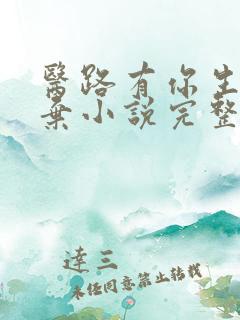 醫路有你生
棄小說完整
達三
未經同意禁止轉載